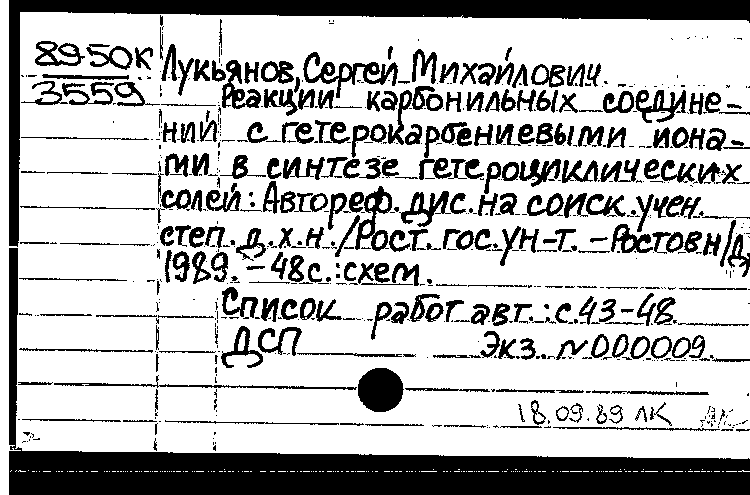 89-50К Лукьянов, Сергей Михайлович.
3559 Реакции карбонильных соедине-
ний с гетерокарбениевыми иона-
ми в синтезе гетероциклических
солей: Автореф. дис. на соиск. учен.
степ. д.х.н. /Рост. гос. ун-т. - Ростов н/Д,
1989. - 48 с.: схем.
Список работ авт.: с. 43-48.
ДСП Экз. N 000009.
18.09.89 ЛК